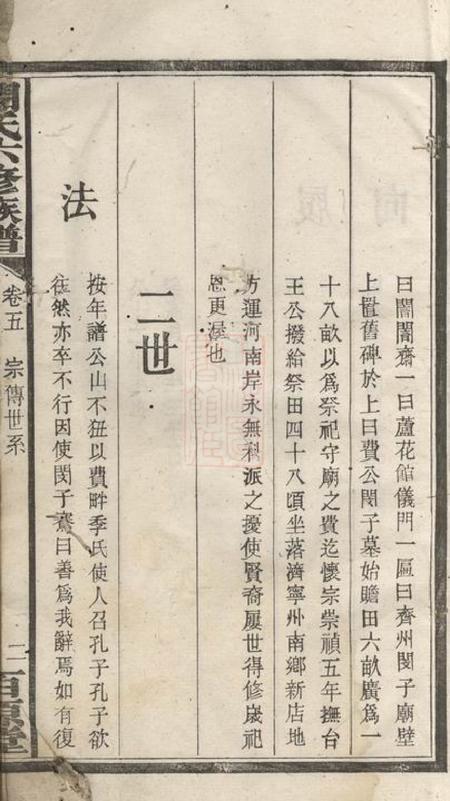 曰誾誾齋一曰蘆花館儀門一區曰齊州閔子廟壁
上置舊碑於上曰費公閔子墓始贍田六畝廣爲一
十八畝以爲祭祀守廟之費迄懷宗崇禎五年撫台
王公撥給祭田四十八頃坐落濟寧州南鄉新店地
方運河南岸永無科派之擾使賢裔屢世得修歲祀
恩更渥也
二世
法
按年譜公山不狃以費畔季氏使人召孔子孔子欲
往然亦卒不行因使閔子騫曰善爲我辭焉如有復
閔氏六修族譜
卷五 宗傳世系
二